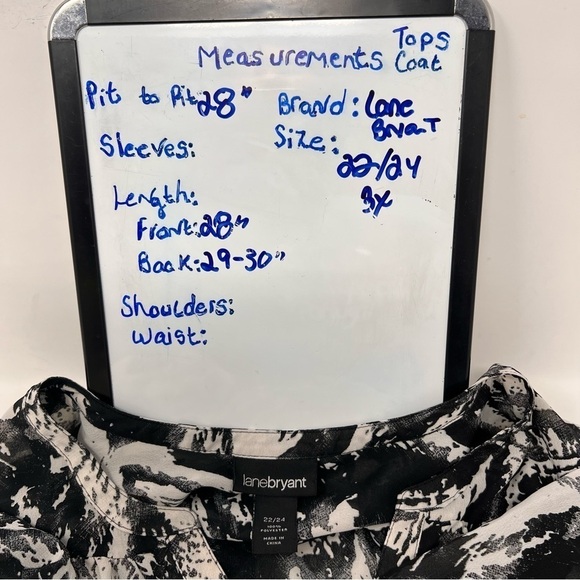 Measurements
Tops
Coat
Pit to Pit: 28"
Brand: Lane
Bryant
Size:
22/24
3x
Sleeves:
Length:
Front: 28"
Back: 29-30"
Shoulders:
Waist:
lanebryant
22/24
100%
POLYESTER
MADE IN
CHINA